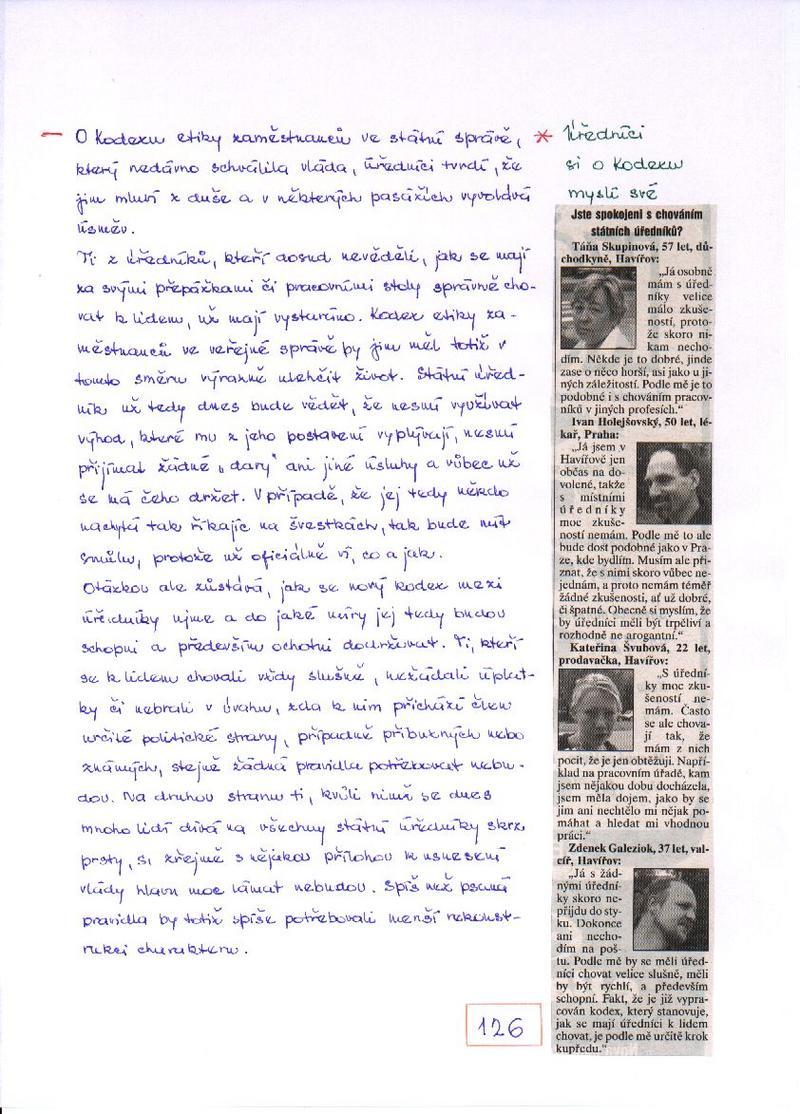 — O Kodexu etiky zaměstnanců ve státní správě,
který nedávno schválila vláda, úředníci tvrdí, že
jim mluví z duše a v některých pasážích vyvolává
úsměv.
Ti z úředníků, kteří dosud nevěděli, jak se mají
za svými přepážkami či pracovními stoly správně cho-
vat k lidem, už mají vystaráno. Kodex etiky za-
městnanců ve veřejné správě by jim měl totiž v
tomto směru výrazně ulehčit život. Státní úřed-
ník už tedy dnes bude vědět, že nesmí využívat
výhod, které mu z jeho postavení vyplývají, nesmí
přijímat žádné „dary" ani jiné úsluhy a vůbec už
se má čeho držet. V případě, že jej tedy někdo
nachytá tak říkajíc na švestkách, tak bude mít
smůlu, protože už oficiálně ví, co a jak.
Otázkou ale zůstává, jak se nový kodex mezi
úředníky ujme a do jaké míry jej tedy budou
schopni a především ochotni dodržovat. Ti, kteří
se k lidem chovali vždy slušně, nežádali úplat-
ky či nebrali v úvahu, zda k nim přichází člen
určité politické strany, případně příbuzných nebo
známých, stejně žádná pravidla potřebovat nebu-
dou. Na druhou stranu ti, kvůli nimž se dnes
mnoho lidí dívá na všechny státní úředníky skrz
prsty, si zřejmě s nějakou přílohou k usnesení
vlády hlavu moc lámat nebudou. Spíš než psaná
pravidla by totiž spíše potřebovali menší rekonst-
rukci charakteru.
126
* Úředníci
si o Kodexu
myslí své
Jste spokojeni s chováním
státních úředníků?
Táňa Skupinová, 57 let, dů-
chodkyně, Havířov:
„Já osobně
mám s úřed-
níky velice
málo zkuše-
ností, proto-
že skoro ni-
kam necho-
dím. Někde je to dobré, jinde
zase o něco horší, asi jako u ji-
ných záležitostí. Podle mě je to
podobné i s chováním pracov-
níků v jiných profesích."
Ivan Holejšovský, 50 let, lé-
kař, Praha:
„Já jsem v
Havířově jen
občas na do-
volené, takže
s místními
úředníky
moc zkuše-
ností nemám. Podle mě to ale
bude dost podobné jako v Pra-
ze, kde bydlím. Musím ale při-
znat, že s nimi skoro vůbec ne-
jednám, a proto nemám téměř
žádné zkušenosti, ať už dobré,
či špatné. Obecně si myslím, že
by úředníci měli být trpěliví a
rozhodně ne arogantní."
Kateřina Švubová, 22 let,
prodavačka, Havířov:
„S úřední-
ky moc zku-
šeností ne-
mám. Často
se ale chova-
jí tak, že
mám z nich
pocit, že je jen obtěžuji. Napří-
klad na pracovním úřadě, kam
jsem nějakou dobu docházela,
jsem měla dojem, jako by se
jim ani nechtělo mi nějak po-
máhat a hledat mi vhodnou
práci."
Zdenek Galeziok, 37 let, val-
cíř, Havířov:
„Já s žád-
nými úřední-
ky skoro ne-
přijdu do sty-
ku. Dokonce
ani necho-
dím na poš-
tu. Podle mě by se měli úřed-
níci chovat velice slušně, měli
by být rychlí, a především
schopní. Fakt, že je již vypra-
cován kodex, který stanovuje,
jak se mají úředníci k lidem
chovat, je podle mě určitě krok
kupředu."